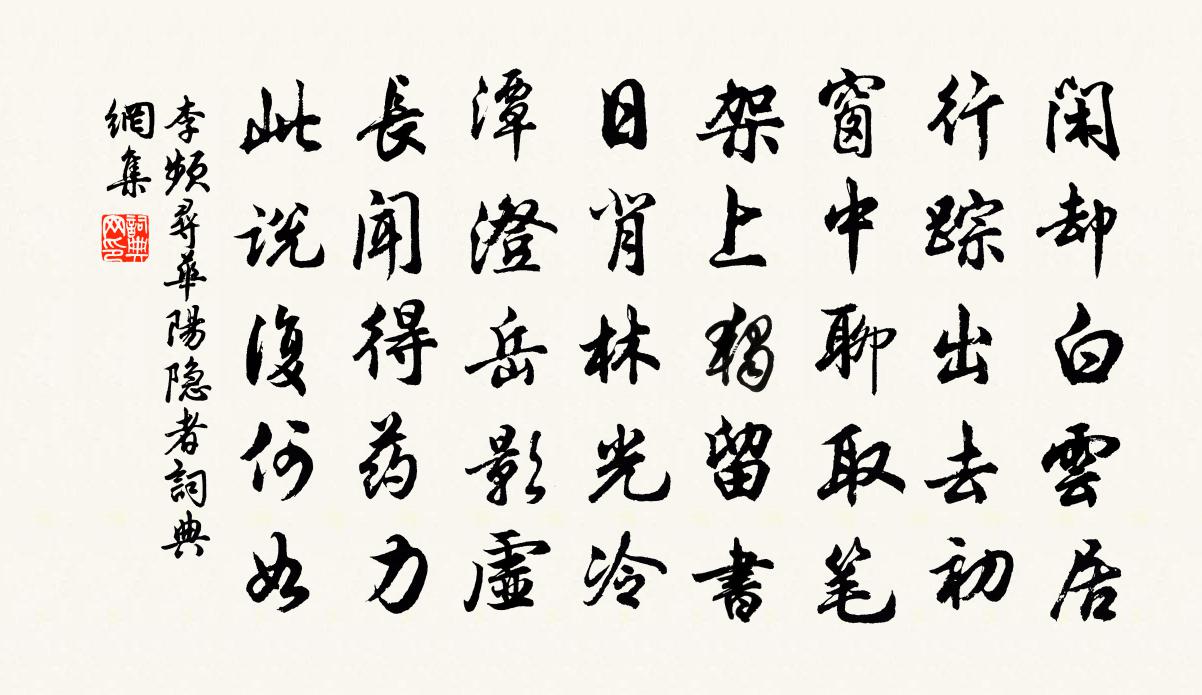 闲却白雲居
行踪出去初
窗中聊取笔
架上独留書
日背林光冷
潭澄岳影虚
長闻得药力
此说復何如
李频尋華陽隐者詞典
網集
詞典
网印